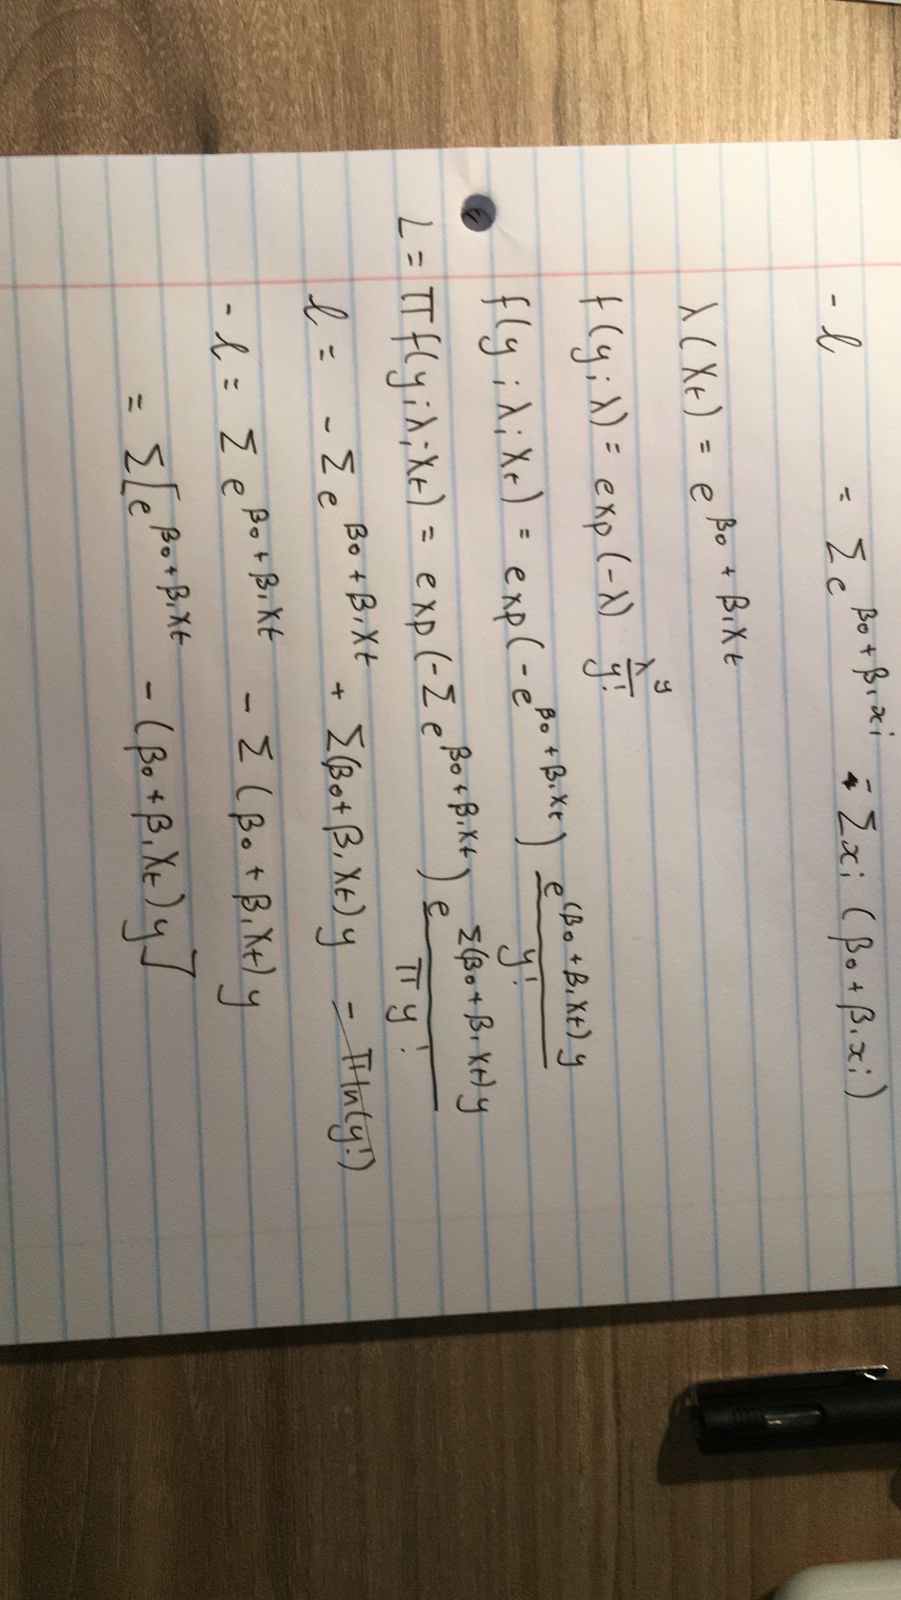 - l = Σ e^{β₀ + β₁xᵢ} - Σ xᵢ (β₀ + β₁xᵢ)
λ(Xt) = e^{β₀ + β₁Xt}
f(y; λ) = exp(-λ) λ^y / y!
f(y; λ; Xt) = exp(-e^{β₀ + β₁Xt}) e^{(β₀ + β₁Xt)y} / y!
L = Π f(y; λ; Xt) = exp(-Σ e^{β₀ + β₁Xt}) e^{Σ(β₀ + β₁Xt)y} / Π y!
l = - Σ e^{β₀ + β₁Xt} + Σ(β₀ + β₁Xt)y - Π ln(y!)
- l = Σ e^{β₀ + β₁Xt} - Σ (β₀ + β₁Xt)y
= Σ[e^{β₀ + β₁Xt} - (β₀ + β₁Xt)y]